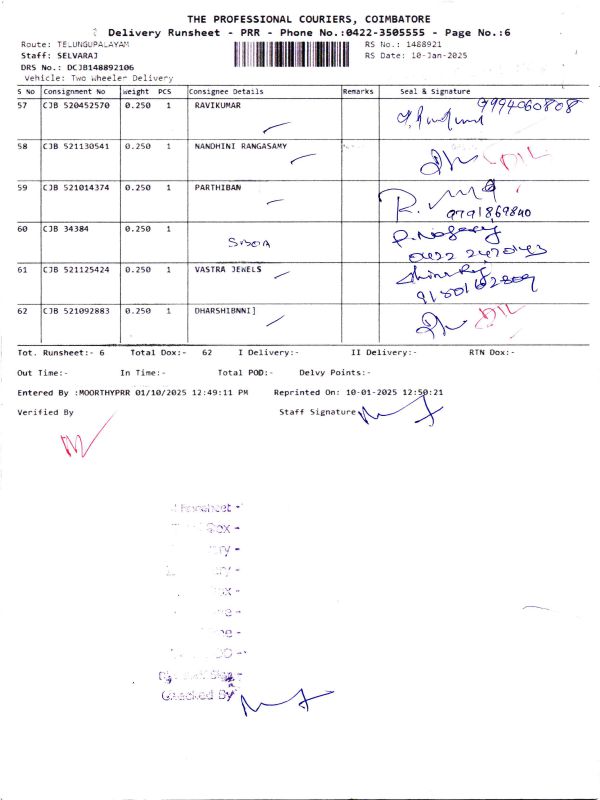 THE PROFESSIONAL COURIERS, COIMBATORE
Delivery Runsheet - PRR - Phone No.:0422-3505555 - Page No.:6
Route: TELUNGUPALAYAM
RS No.: 1488921
Staff: SELVARAJ
RS Date: 10-Jan-2025
DRS No.: DCJB148892106
Vehicle: Two Wheeler Delivery
S No Consignment No Weight PCS Consignee Details Remarks Seal & Signature
57 CJB 520452570 0.250 1 RAVIKUMAR 9994060808
58 CJB 521130541 0.250 1 NANDHINI RANGASAMY DIL
59 CJB 521014374 0.250 1 PARTHIBAN 9791869840
60 CJB 34384 0.250 1
0422 2470143
61 CJB 521125424 0.250 1 VASTRA JEWELS
62 CJB 521092883 0.250 1 DHARSHIBNNI] DIL
Tot. Runsheet:- 6 Total Dox:- 62 I Delivery:- II Delivery:- RTN Dox:-
Out Time:- In Time:- Total POD:- Delvy Points:-
Entered By :MOORTHYPRR 01/10/2025 12:49:11 PM Reprinted On: 10-01-2025 12:50:21
Verified By Staff Signature
Checked By